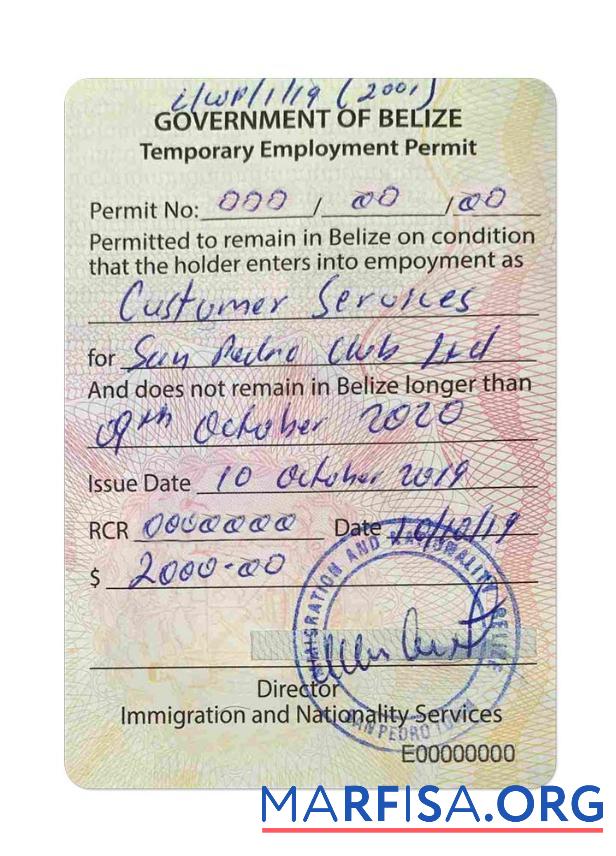 i/WP/1/19 (2001)
GOVERNMENT OF BELIZE
Temporary Employment Permit
Permit No: 000 / 00 / 00
Permitted to remain in Belize on condition
that the holder enters into empoyment as
Customer Services
for San Pedro Club Ltd
And does not remain in Belize longer than
09th October 2020
Issue Date 10 October 2019
RCR 0000000 Date 10/10/19
$ 2000-00
IMMIGRATION AND NATIONALITY BELIZE
SAN PEDRO TOWN
Director
Immigration and Nationality Services
E00000000
MARFISA.ORG